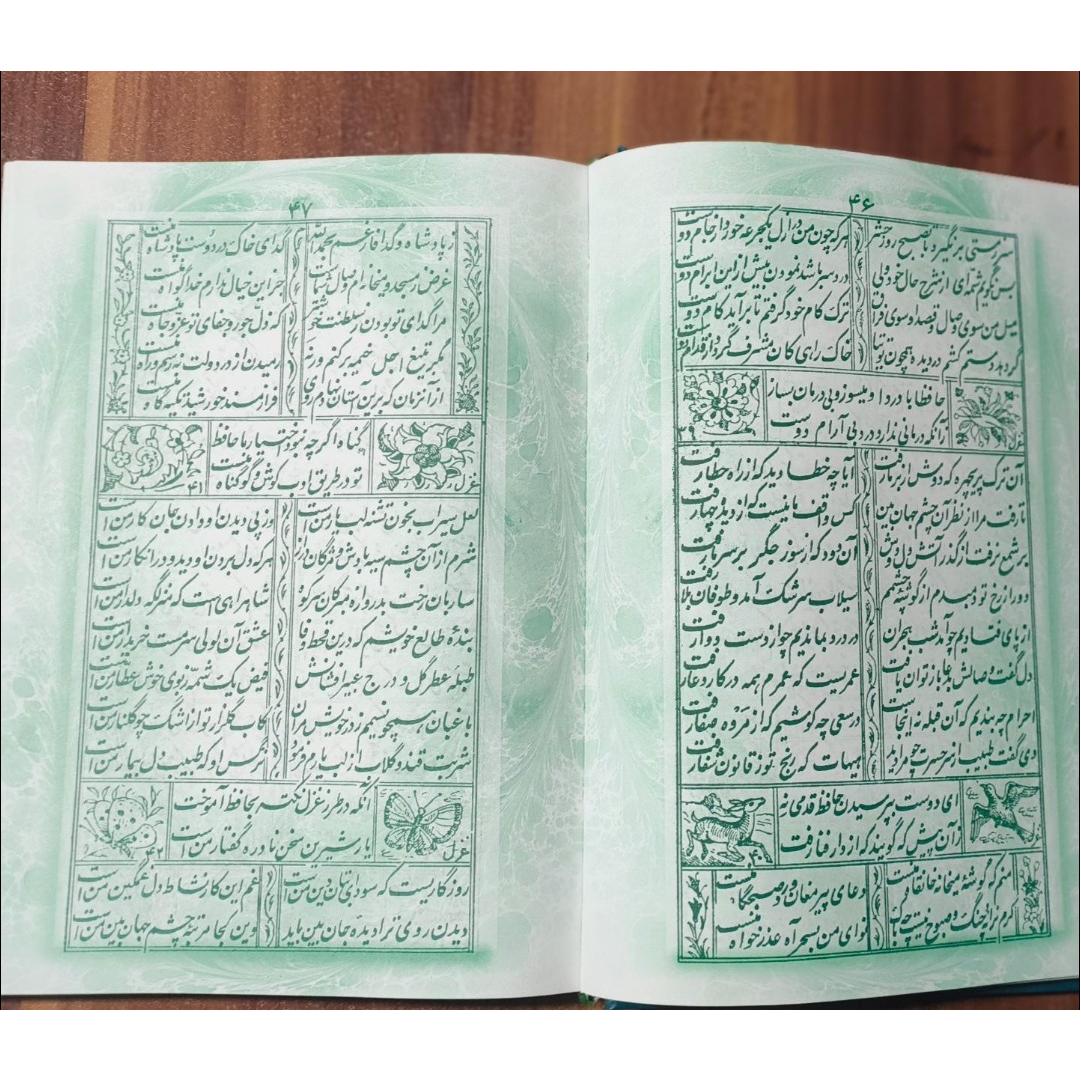 ۴۶
سر ز مستی برنگیرد تا بصبح روز حشر هر که چون من در ازل یکجرعه خورد از جام دوست
بس نگویم شمه‌ای از شرح حال خود ولی دردسر باشد نمودن بیش از این ابرام دوست
میل من سوی وصال و قصد او سوی فراق ترک کام خود گرفتم تا برآید کام دوست
گر دهد دستم کشم در دیده همچون توتیا خاک راهی کان مشرف گردد از اقدام دوست
حافظا با درد او میسوز و بی درمان بساز
زآنکه درمانی ندارد درد بی آرام دوست
غزل ۳۹
آن ترک پریچهره که دوش از بر ما رفت آیا چه خطا دید که از راه خطا رفت
تا رفت مرا از نظر آن چشم جهان بین کس واقف ما نیست که از دیده چها رفت
بر شمع نرفت از گذر آتش دل دوش آن دود که از سوز جگر بر سر ما رفت
دور از رخ تو دمبدم از گوشهٔ چشمم سیلاب سرشک آمد و طوفان بلا رفت
از پای فتادیم چو آمد شب هجران در درد بماندیم چو از دست دوا رفت
دل گفت وصالش بدعا باز توان یافت عمریست که عمرم همه در کار دعا رفت
احرام چه بندیم که آن قبله نه اینجاست در سعی چه کوشیم که از مروه صفا رفت
دی گفت طبیب از سر حسرت چو مرا دید هیهات که رنج تو ز قانون شفا رفت
ای دوست بپرسیدن حافظ قدمی نه
زان پیش که گویند که از دار فنا رفت
غزل ۴۰
منم که گوشهٔ میخانه خانقاه منست دعای پیر مغان ورد صبحگاه منست
گرم ترانه چنگ و صبوح نیست چه باک نوای من بسحر آه عذرخواه منست
۴۷
ز پادشاه و گدا فارغم بحمدالله گدای خاک در دوست پادشاه منست
غرض ز مسجد و میخانه‌ام وصال شماست جز این خیال ندارم خدا گواه منست
مرا گدای تو بودن ز سلطنت خوشتر که ذل جور و جفای تو عز و جاه منست
مگر بتیغ اجل خیمه برکنم ورنه رمیدن از در دولت نه رسم و راه منست
از آنزمان که برین آستان نهادم روی فراز مسند خورشید تکیه گاه منست
گناه اگر چه نبود اختیار ما حافظ
تو در طریق ادب کوش گو گناه منست
غزل ۴۱
لعل سیراب بخون تشنه لب یار منست وز پی دیدن او دادن جان کار منست
شرم از آن چشم سیه بادش و مژگان دراز هر که دل بردن او دید و در انکار منست
ساربان رخت بدروازه مبر کان سر کو شاهراهی است که منزلگه دلدار منست
بندهٔ طالع خویشم که درین قحط وفا عشق آن لولی سرمست خریدار منست
طبلهٔ عطر گل و درج عبیر افشانش فیض یک شمه ز بوی خوش عطار منست
باغبان همچو نسیمم ز در خویش مران کاب گلزار تو از اشک چو گلنار منست
شربت قند و گلاب از لب یارم فرمود نرگس او که طبیب دل بیمار منست
آنکه در طرز غزل نکته بحافظ آموخت
یار شیرین سخن نادره گفتار منست
غزل ۴۲
روزگاریست که سودای بتان دین منست غم این کار نشاط دل غمگین منست
دیدن روی ترا دیده جان بین باید وین کجا مرتبهٔ چشم جهان بین منست